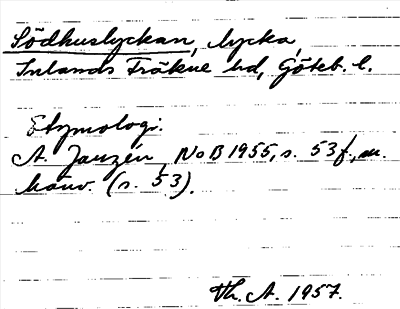 Södhuslyckan, lycka,
Inlands Fräkne hd, Göteb. l.
Etymologi.
A. Janzén, NoB 1955, s. 53 f., m.
hänv. (s. 53).
Th. A. 1957.